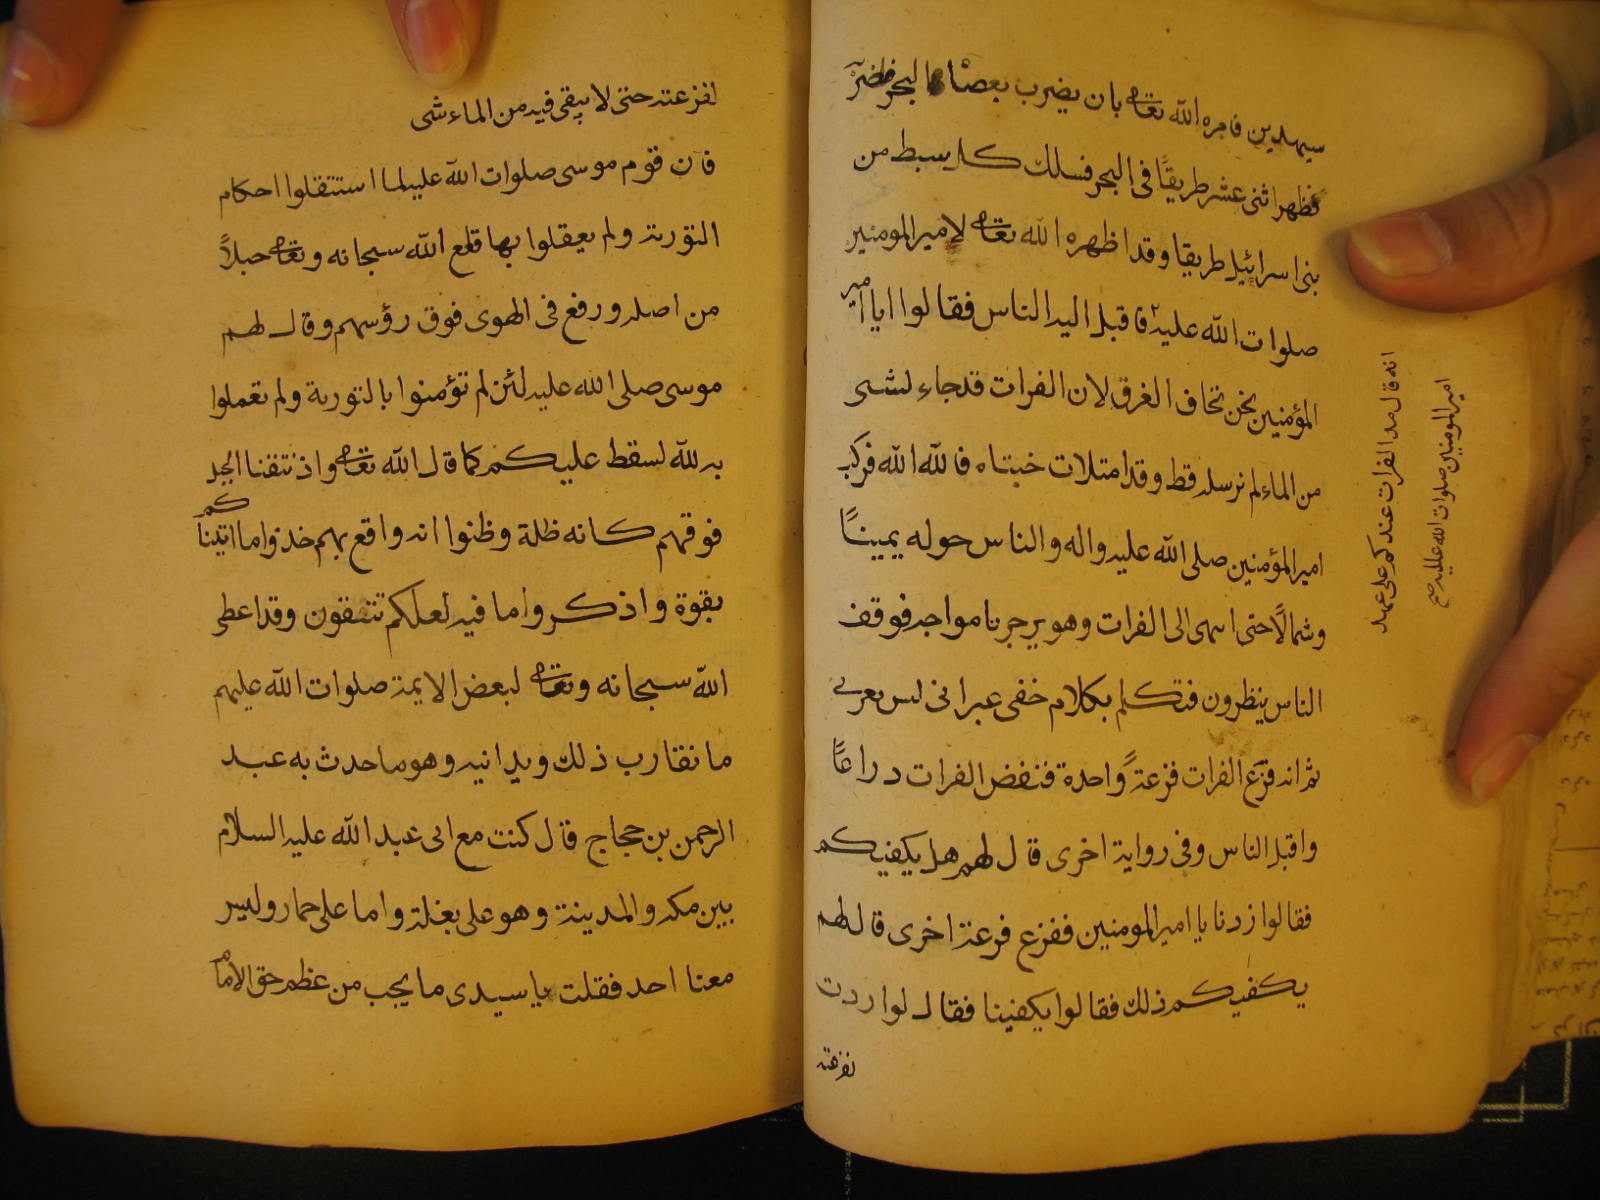 سيهدين فامره الله تعالى بان يضرب بعصاه البحر فضربه
فظهر اثنى عشر طريقاً فى البحر فسلك كل سبط من
بنى اسرائيل طريقا وقد اظهره الله تعالى لامير المومنين
صلوات الله عليه فاقبل اليه الناس فقالوا ايا امير
المؤمنين نحن نخاف الغرق لان الفرات قد جاء لشى
من الماء لم نر سله قط وقد امتلات خبتاه فالله الله فركب
امير المؤمنين صلى الله عليه واله والناس حوله يميناً
وشمالاً حتى الى الفرات وهو فوقف
الناس ينظرون فتكلم بكلام خفى عبرانى ليس بعربى
ثم انه قزع الفرات قزعة واحدة فنفض الفرات دراعاً
واقبل الناس وفى رواية اخرى قال لهم هل يكفيكم
فقالوا زدنا يا امير المومنين ففزع فرعة اخرى قال لهم
يكفيكم ذلك فقالوا يكفينا فقال لو اردت
لفزعته
انه قال مد الفرات عندكم على عهد
امير المومنين صلوات الله عليه صح
لفزعته حتى لا يبقى فيه من الماء شى
فان قوم موسى صلوات الله عليه لما استثقلوا احكام
التورية ولم يعقلوا بها قلع الله سبحانه وتعالى جبلاً
من اصله ورفع فى الهوى فوق رؤسهم وقال لهم
موسى صلى الله عليه لئن لم تؤمنوا بالتورية ولم تعملوا
به لله لسقط عليكم كما قال الله تعالى واذ نتقنا الجبل
فوقهم كانه ظلة وظنوا انه واقع بهم خذوا ما اتيناكم
بقوة واذكروا ما فيه لعلكم تتقون وقد اعطى
الله سبحانه وتعالى لبعض الايمة صلوات الله عليهم
ما نقارب ذلك ويدانيه وهو ما حدث به عبد
الرحمن بن حجاج قال كنت مع ابى عبد الله عليه السلام
بين مكه والمدينة وهو على بغلة وانا على حمار وليس
معنا احد فقلت يا سيدى ما يجب من عظم حق الامام